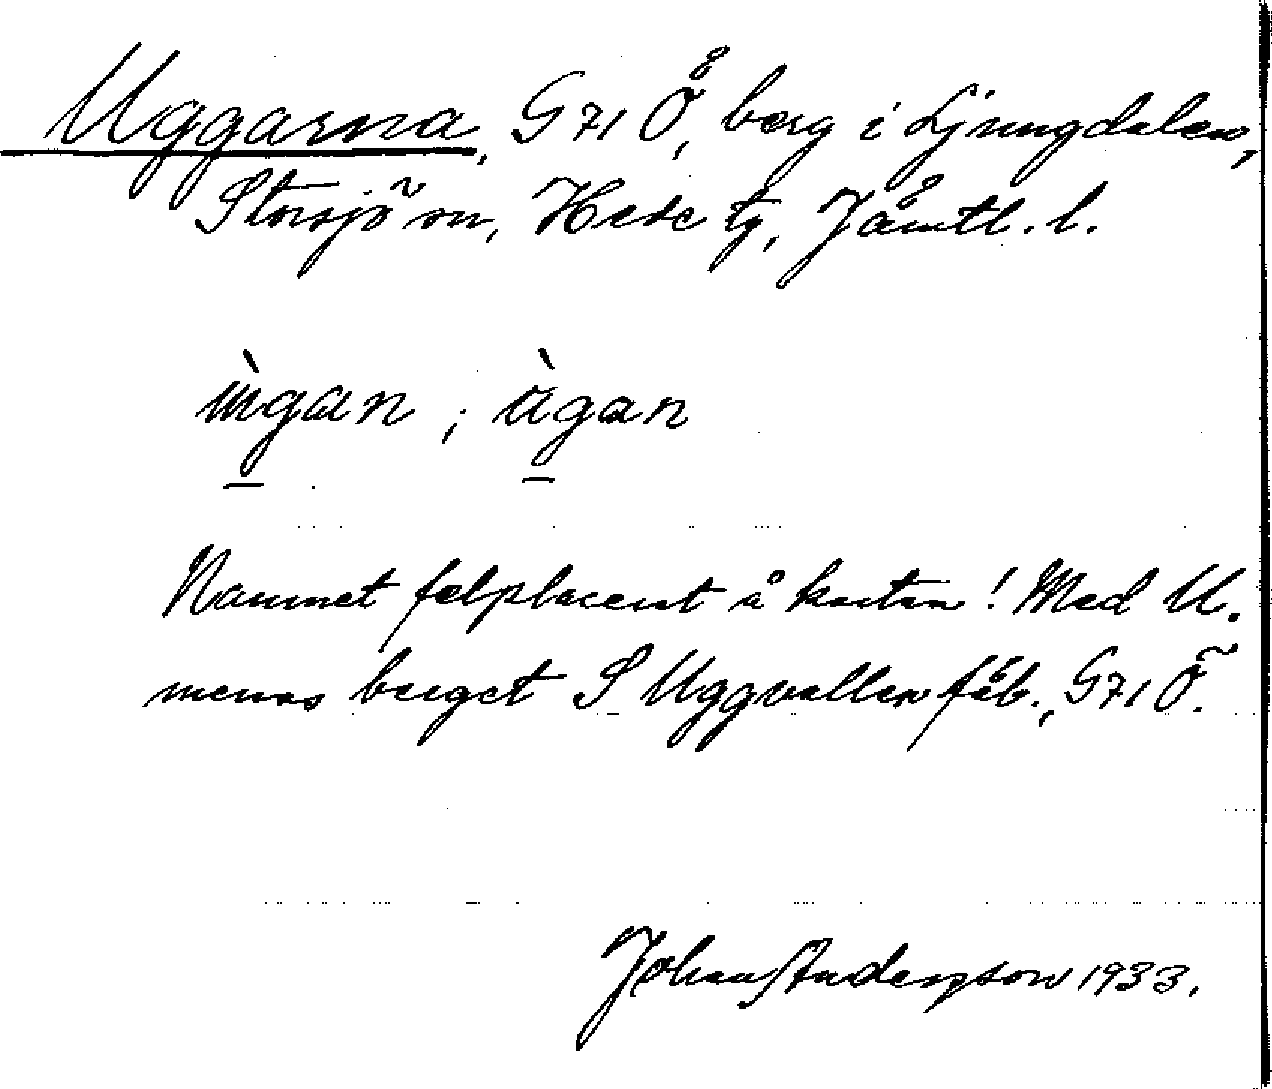 Uggarna, G 71 Ö, berg i Ljungdalen,
Storsjö sn, Hede tg, Jämtl. l.
ùgan ; ùgan
Namnet felplacerat å kartan! Med U.
menas berget S Uggvallen fäb., G 71 Ö.
Johan Anderson 1933.